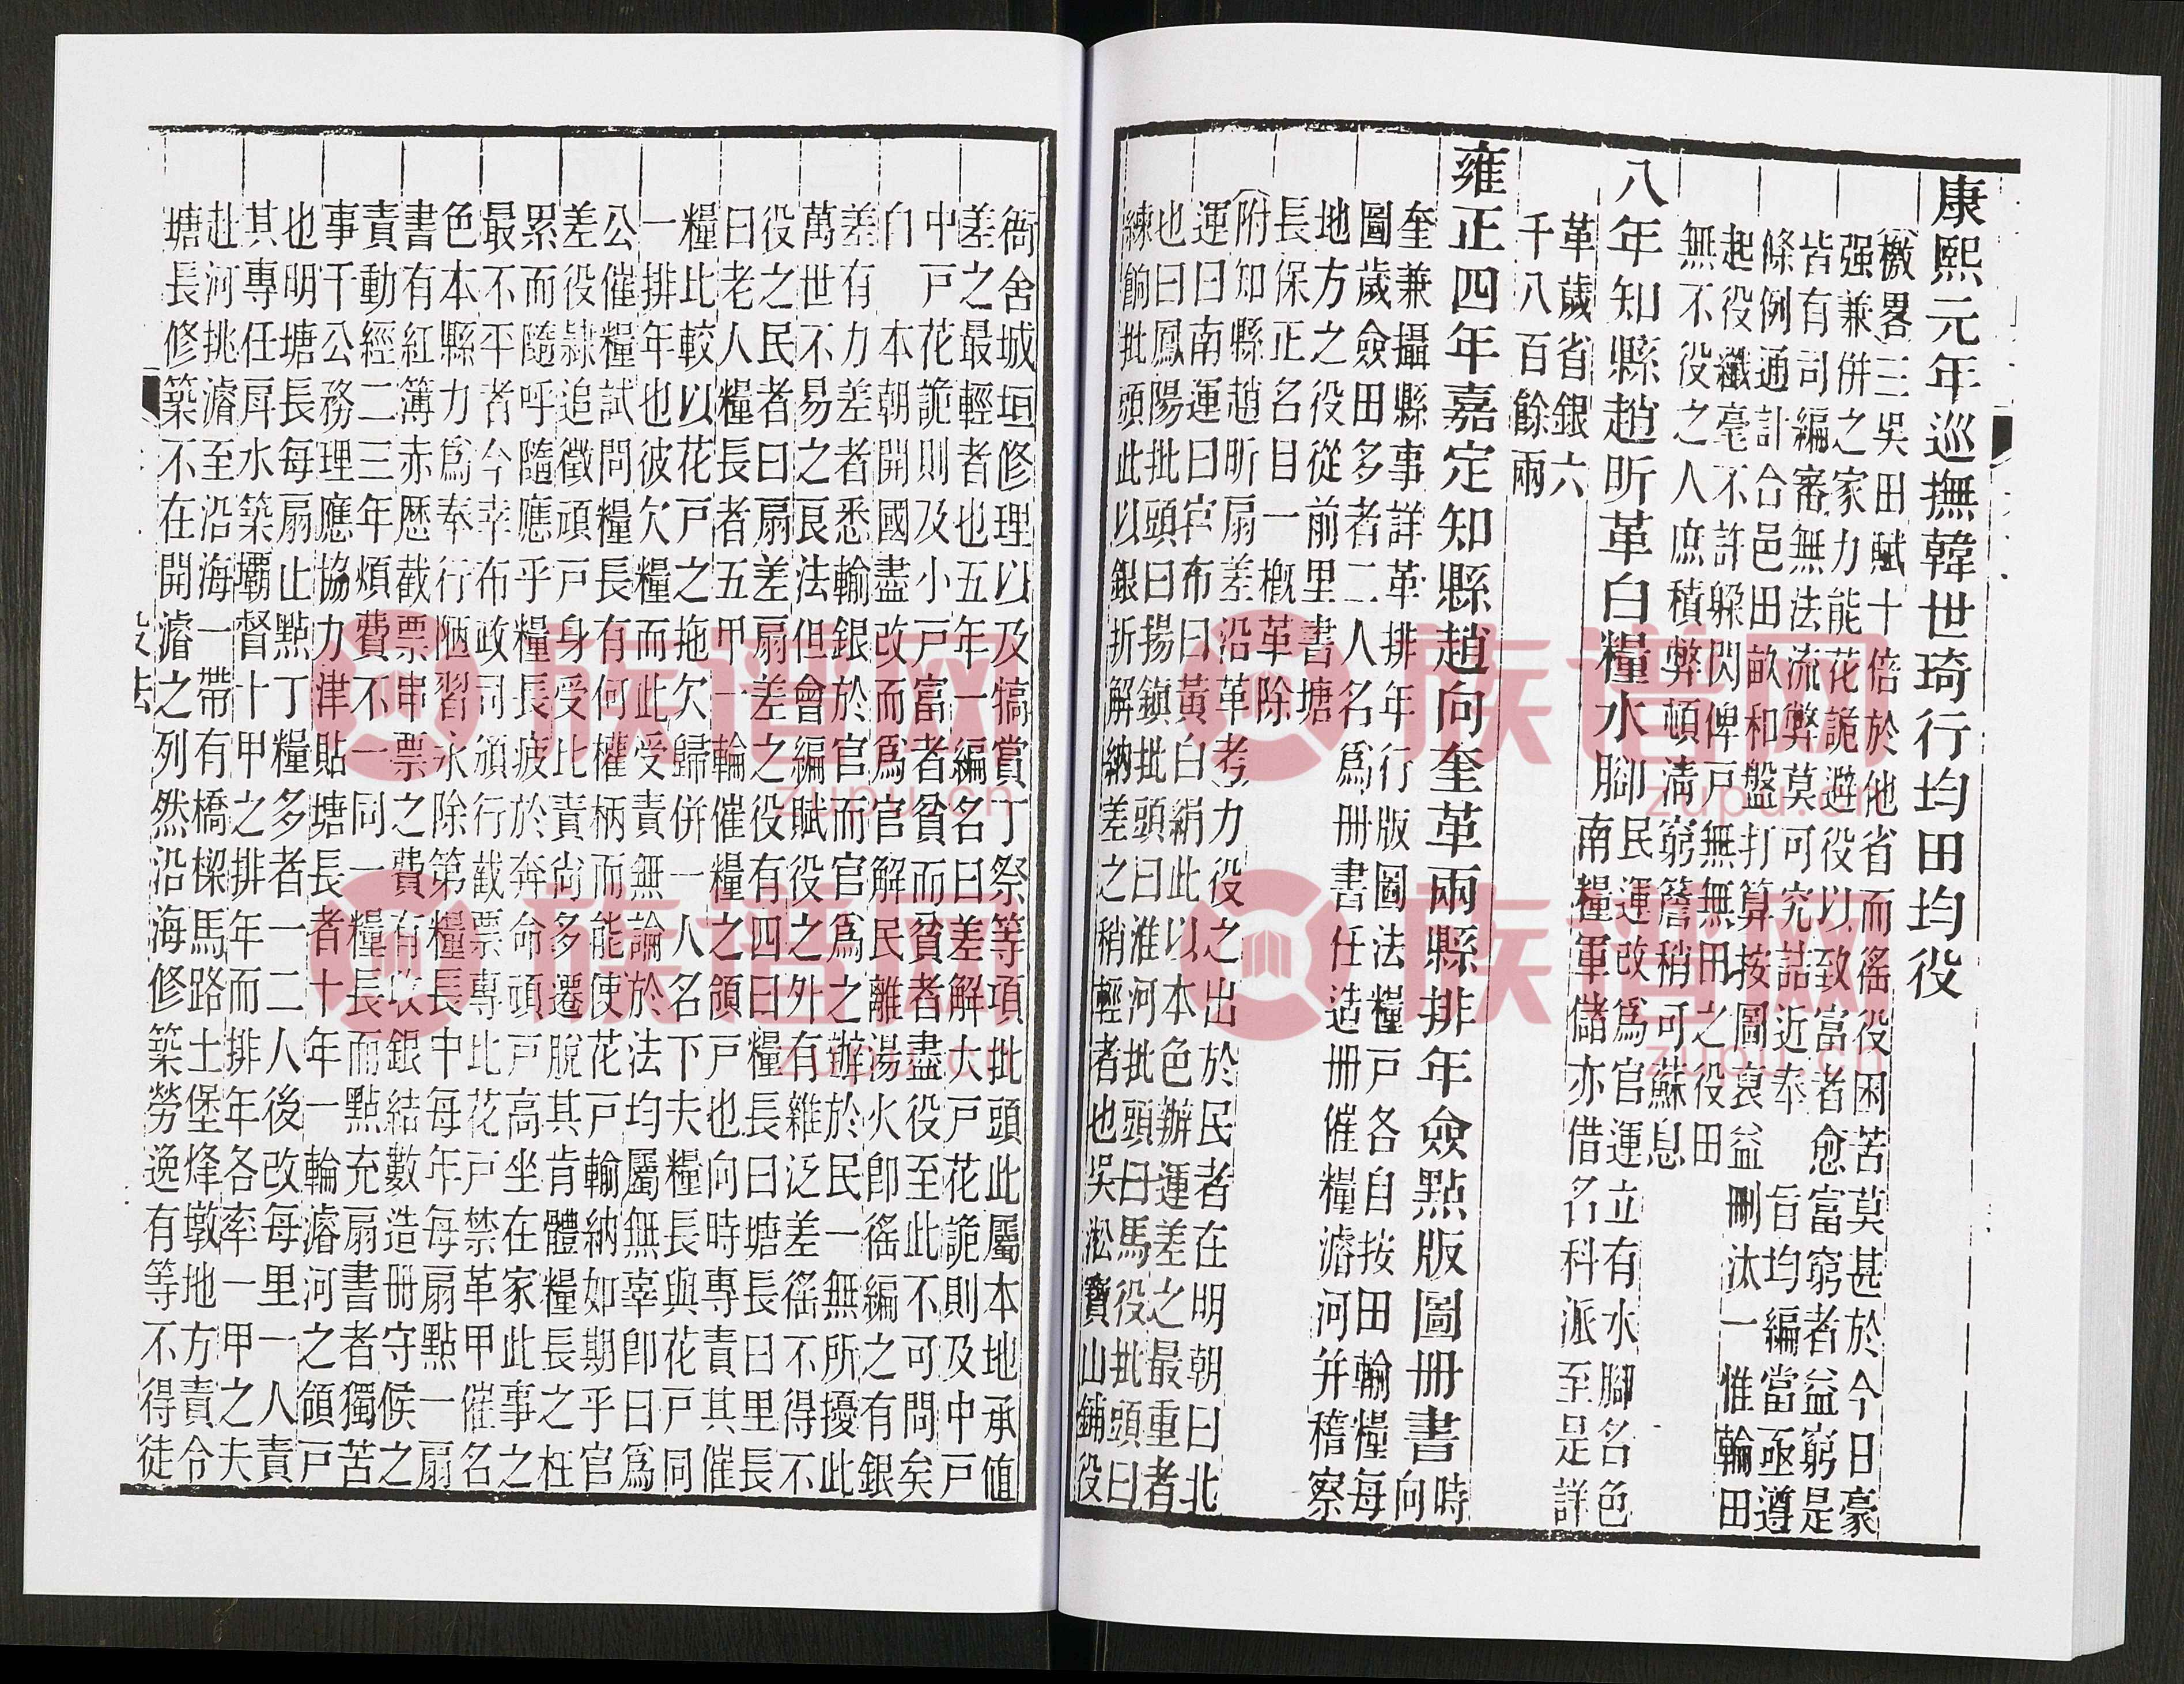 康熙元年巡撫韓世琦行均田均役
(檄畧)三吳田賦十倍於他省而徭役困苦莫甚於今日豪
强兼併之家力能花詭避役以致富者愈富窮者益窮是
皆有司編審無法流弊莫可究詰近奉旨均編當亟遵
條例通計合邑田畝和盤打算按圖裒益刪汰一惟輪田
起役纖毫不許躲閃俾戶無無田之役田
無不役之人庶積弊頓淸窮簷稍可蘇息
八年知縣趙昕革白糧水脚民運改爲官運立有水脚名色
南糧軍儲亦借名科派至是詳
革歲省銀六
千八百餘兩
雍正四年嘉定知縣趙向奎革兩縣排年僉點版圖冊書時
向
奎兼攝縣事詳革排年行版圖法糧戶各自按田輸糧每
圖歲僉田多者二人名爲冊書任造冊催糧濬河并稽察
地方之役從前里書塘
長保正名目一槪革除
(附知縣趙昕扇差沿革考)力役之出於民者在明朝曰北
運曰南運曰官布曰黃白絹此以本色辦運差之最重者
也曰鳳陽批頭曰揚鎭批頭曰淮河批頭曰馬役批頭曰
練餉批頭此以銀折解納差之稍輕者也吳淞寶山鋪役
衙舍城垣修理以及犒賞丁祭等項批頭此屬本地承値
差之最輕者也五年一編名曰差解大戶花詭則及中戶
中戶花詭則及小戶富者貧而貧者盡役至此不可問矣
自本朝開國盡改而爲官解民離湯火卽徭編之有銀
差有力差者悉輸銀於官而官爲之辦於民一無所擾此
萬世不易之良法但會編賦役之外有雜泛差徭不得不
役之民者曰扇差扇差之役有四曰糧長曰塘長曰里長
曰老人糧長者五甲一輪催糧之領戶也向時專責其催
糧比較以花戶之拖欠歸併一人名下夫糧長與花戶同
一排年也彼欠糧而此受責無論於法均屬無辜卽曰爲
公催糧試問糧長有何權柄而能使花戶輸納如期乎官
差役隸追徵頑戶身受比責尙多遷脫其肯體糧長之枉
累而隨呼隨應乎糧長疲於奔命頑戶高坐在家此事之
最不平者今幸布政司頒行截票專比花戶禁革甲催名
色本縣力爲奉行陋習永除第糧長中每年每扇點一扇
書有紅簿赤歷截票串票之費有收銀結數造冊守候之
責動經二三年煩費不一同一糧長而點充扇書者獨苦
事千公務理應協力津貼塘長者十年一輪濬河之領戶
也明塘長每扇止點丁糧多者一二人後改每里一人責
其專任戽水築壩督十甲之排年而排年各率一甲之夫
赴河挑濬至沿海一帶有橋樑馬路土堡烽墩地方責令
塘長修築不在開濬之列然沿海修築勞逸有等不得徒